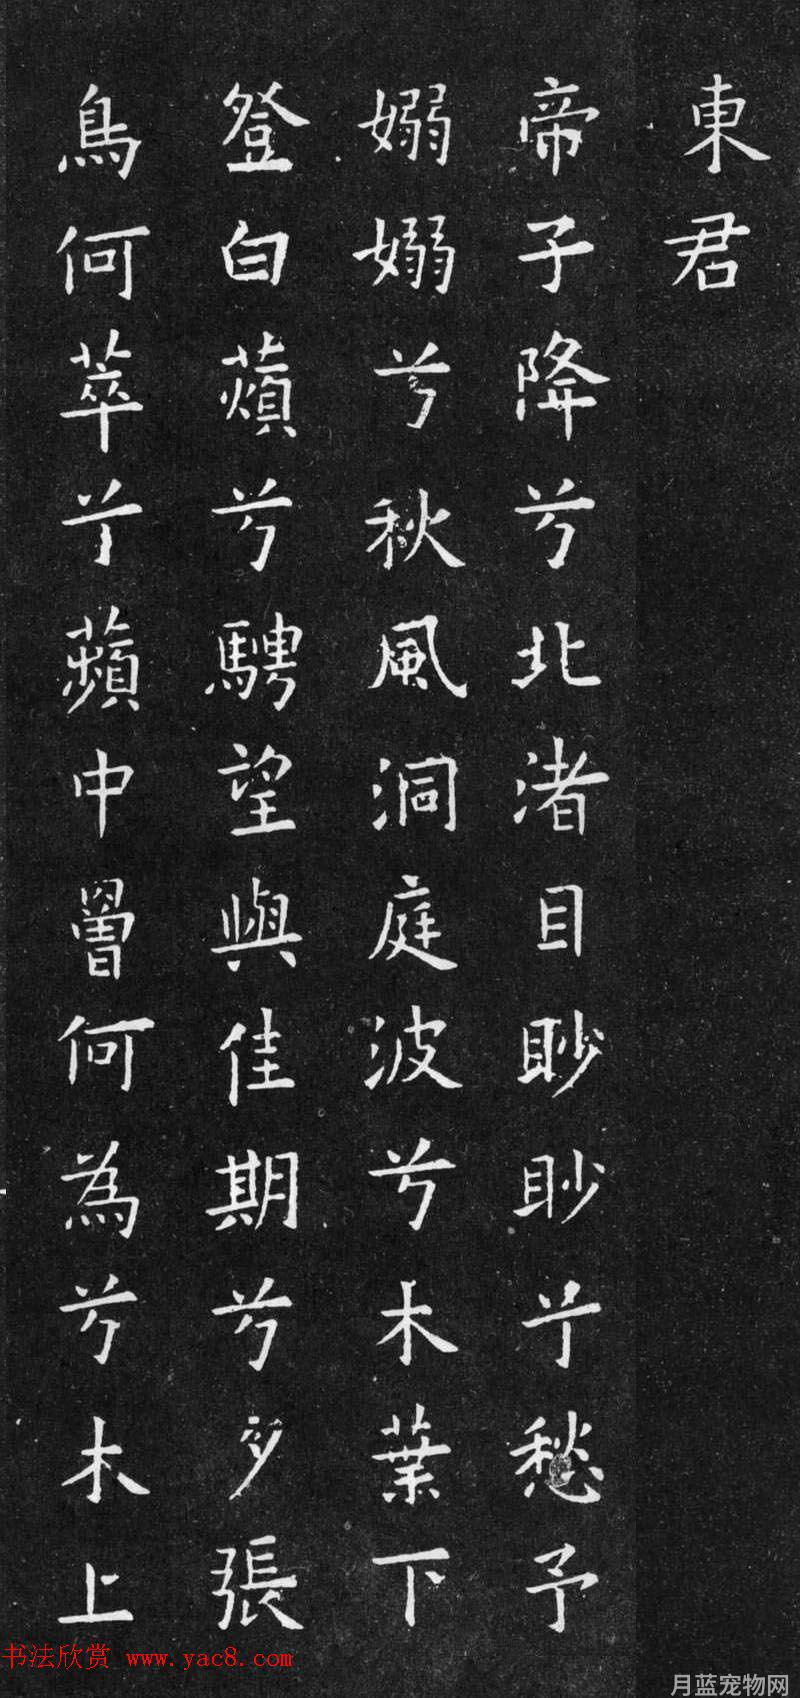 東君
帝子降兮北渚目眇眇兮愁予
嫋嫋兮秋風洞庭波兮木葉下
登白薠兮騁望與佳期兮夕張
鳥何萃兮蘋中罾何為兮木上
书法欣赏 www.yac8.com
月蓝宠物网